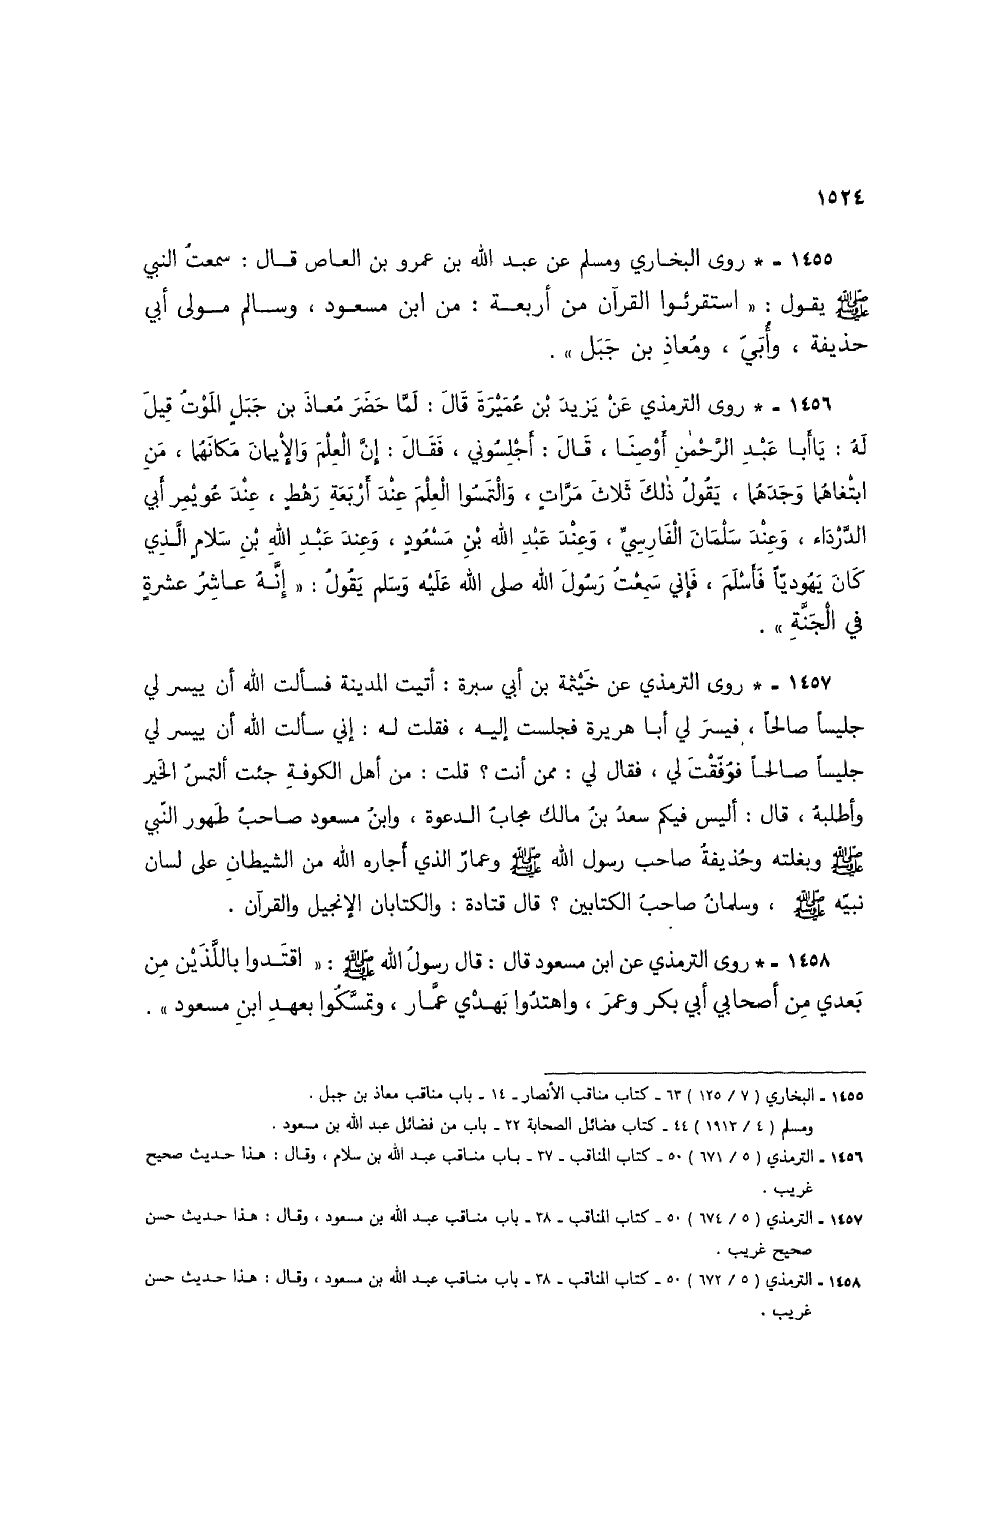 ١٥٢٤
١٤٥٥ - * روى البخاري ومسلم عن عبد الله بن عمرو بن العاص قال : سمعتُ النبي
ﷺ يقول : « استقرئوا القرآن من أربعة : من ابن مسعود ، وسالم مولى أبي
حذيفة ، وأُبَيّ ، ومُعاذِ بن جَبَل » .
١٤٥٦ - * روى الترمذي عَنْ يَزِيدَ بْن عُمَيْرَةَ قَالَ : لَمَّا حَضَرَ مُعاذَ بن جَبَلٍ المَوْتُ قِيلَ
لَهُ : يَاأَبا عَبْدِ الرَّحْمٰنِ أَوْصِنَا ، قَالَ : أَجْلِسُوني ، فَقَالَ : إنَّ الْعِلْمَ وَالإْيمانَ مَكانَهُما ، مَنِ
ابتْغاهُما وَجَدَهُما ، يَقُولُ ذٰلكَ ثَلاثَ مَرَّاتٍ ، وَالْتَمِسُوا الْعِلْمَ عِنْدَ أَرْبَعَةِ رَهْطٍ ، عِنْدَ عُوَيْمِرِ أبي
الدَّرْدَاء ، وَعِنْدَ سَلْمَانَ الْفَارِسِيِّ ، وَعِنْدَ عَبْدِ الله بْنِ مَسْعُودٍ ، وَعِندَ عَبْدِ اللهِ بْنِ سَلَامٍ الَّذِي
كَانَ يَهُودِيّاً فَأَسْلَمَ ، فَإني سَمِعْتُ رَسُولَ الله صلى الله عَلَيْه وَسَلم يَقُولُ : « إنَّهُ عاشِرُ عشرةٍ
في الْجَنَّةِ » .
١٤٥٧ - * روى الترمذي عن خَيْثَمة بن أبي سبرة : أتيت المدينة فسألت الله أن ييسر لي
جليساً صالحاً ، فيسرَ لي أبا هريرة فجلست إليه ، فقلت له : إني سألت الله أن ييسر لي
جليساً صالحاً فوُفّقْتَ لي ، فقال لي : ممن أنت ؟ قلت : من أهل الكوفةِ جئت ألتمسُ الخير
وأطلبهُ ، قال : أليس فيكم سعدُ بنُ مالك مجابُ الدعوة ، وابنُ مسعود صاحبُ طَهور النّبي
ﷺ وبغلته وحُذيفةُ صاحب رسول الله ﷺ وعمارٌ الذي أجاره الله من الشيطانِ على لسان
نبيّه ﷺ ، وسلمانُ صاحبُ الكتابين ؟ قال قتادة : والكتابان الإنجيل والقرآن .
١٤٥٨ - * روى الترمذي عن ابن مسعود قال : قال رسولُ الله ﷺ : « اقتَدوا باللَّذَيْن مِن
بَعدي مِن أصحابي أبي بكر وعمرَ ، واهتدُوا بَهدْي عمَّار ، وتمسَّكُوا بعهدِ ابنِ مسعود » .
١٤٥٥ - البخاري ( ٧ / ١٢٥ ) ٦٣ - كتاب مناقب الأنصار - ١٤ - باب مناقب معاذ بن جبل .
ومسلم ( ٤ / ١٩١٣ ) ٤٤ - كتاب فضائل الصحابة ٢٢ - باب من فضائل عبد الله بن مسعود .
١٤٥٦ - الترمذي ( ٥ / ٦٧١ ) ٥٠ - كتاب المناقب - ٣٧ - باب مناقب عبد الله بن سلام ، وقال : هذا حديث صحيح
غريب .
١٤٥٧ - الترمذي ( ٥ / ٦٧٤ ) ٥٠ - كتاب المناقب - ٣٨ - باب مناقب عبد الله بن مسعود ، وقال : هذا حديث حسن
صحيح غريب .
١٤٥٨ - الترمذي ( ٥ / ٦٧٢ ) ٥٠ - كتاب المناقب - ٣٨ - باب مناقب عبد الله بن مسعود ، وقال : هذا حديث حسن
غريب .